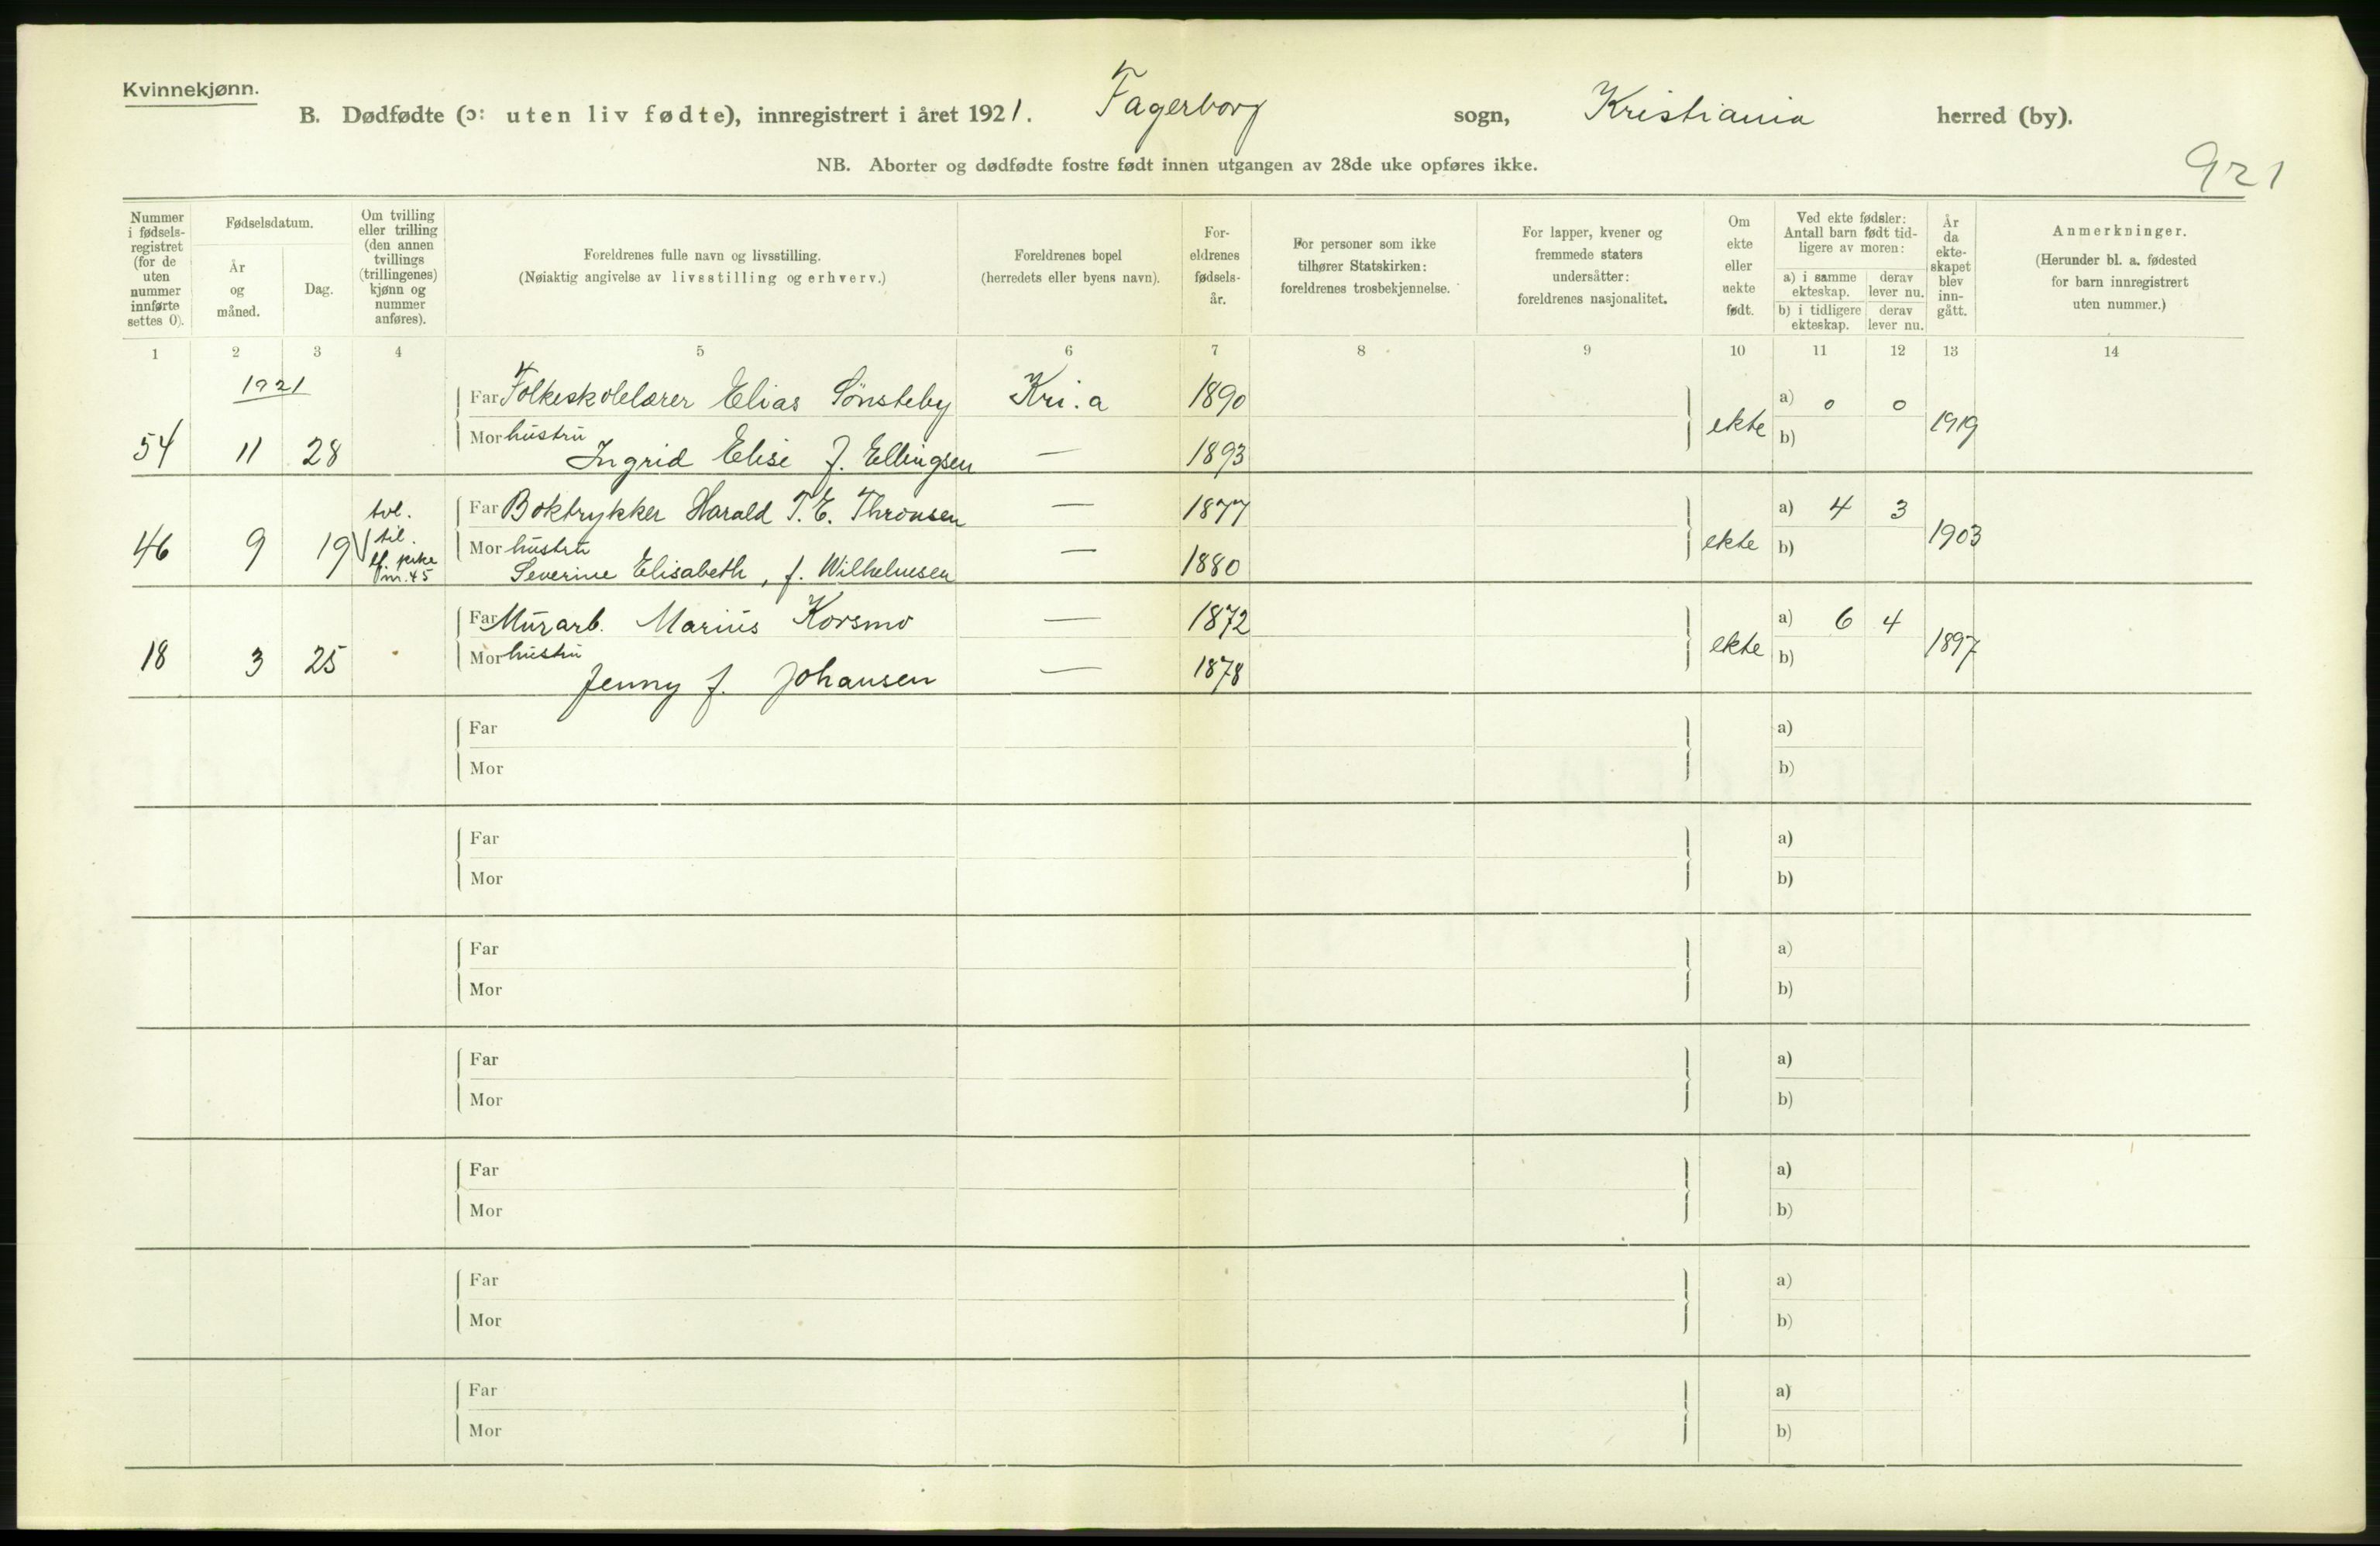 Kvinnekjønn.
B. Dødfødte (ɔ: uten liv fødte), innregistrert i året 1921. Fagerborg sogn, Kristiania herred (by).
NB. Aborter og dødfødte fostre født innen utgangen av 28de uke opføres ikke.
921
Nummer
i fødsels-
registret
(for de
uten
nummer
innførte
settes 0).
Fødselsdatum.
År
og
måned.
Dag.
Om tvilling
eller trilling
(den annen
tvillings
(trillingenes)
kjønn og
nummer
anføres).
Foreldrenes fulle navn og livsstilling.
(Nøiaktig angivelse av livsstilling og erhverv.)
Foreldrenes bopel
(herredets eller byens navn).
For-
eldrenes
fødsels-
år.
For personer som ikke
tilhører Statskirken:
foreldrenes trosbekjennelse.
For lapper, kvener og
fremmede staters
undersåtter:
foreldrenes nasjonalitet.
Om
ekte
eller
uekte
født.
Ved ekte fødsler:
Antall barn født tid-
ligere av moren:
a) i samme
ekteskap.
derav
lever nu.
b) i tidligere
ekteskap.
derav
lever nu.
År
da
ekte-
skapet
blev
inn-
gått.
Anmerkninger.
(Herunder bl. a. fødested
for barn innregistrert
uten nummer.)
1 2 3 4 5 6 7 8 9 10 11 12 13 14
1921
Far Folkeskolelærer Elias Sønsteby Kri.a 1890 a) 0 0
54 11 28 Mor hustru ekte b) 1919
Ingrid Elise f. Ellingsen — 1893
tvl.
til.
pike
nr. 45
Far Boktrykker Harald T. E. Thronsen — 1877 a) 4 3
46 9 19 Mor hustru — ekte b) 1903
Severine Elisabeth, f. Wilhelmsen 1880
Far Murarb. Marius Korsmo — 1872 a) 6 4
18 3 25 Mor hustru ekte b) 1897
Jenny f. Johansen — 1878
Far a)
Mor b)
Far a)
Mor b)
Far a)
Mor b)
Far a)
Mor b)
Far a)
Mor b)
Far a)
Mor b)
Far a)
Mor b)